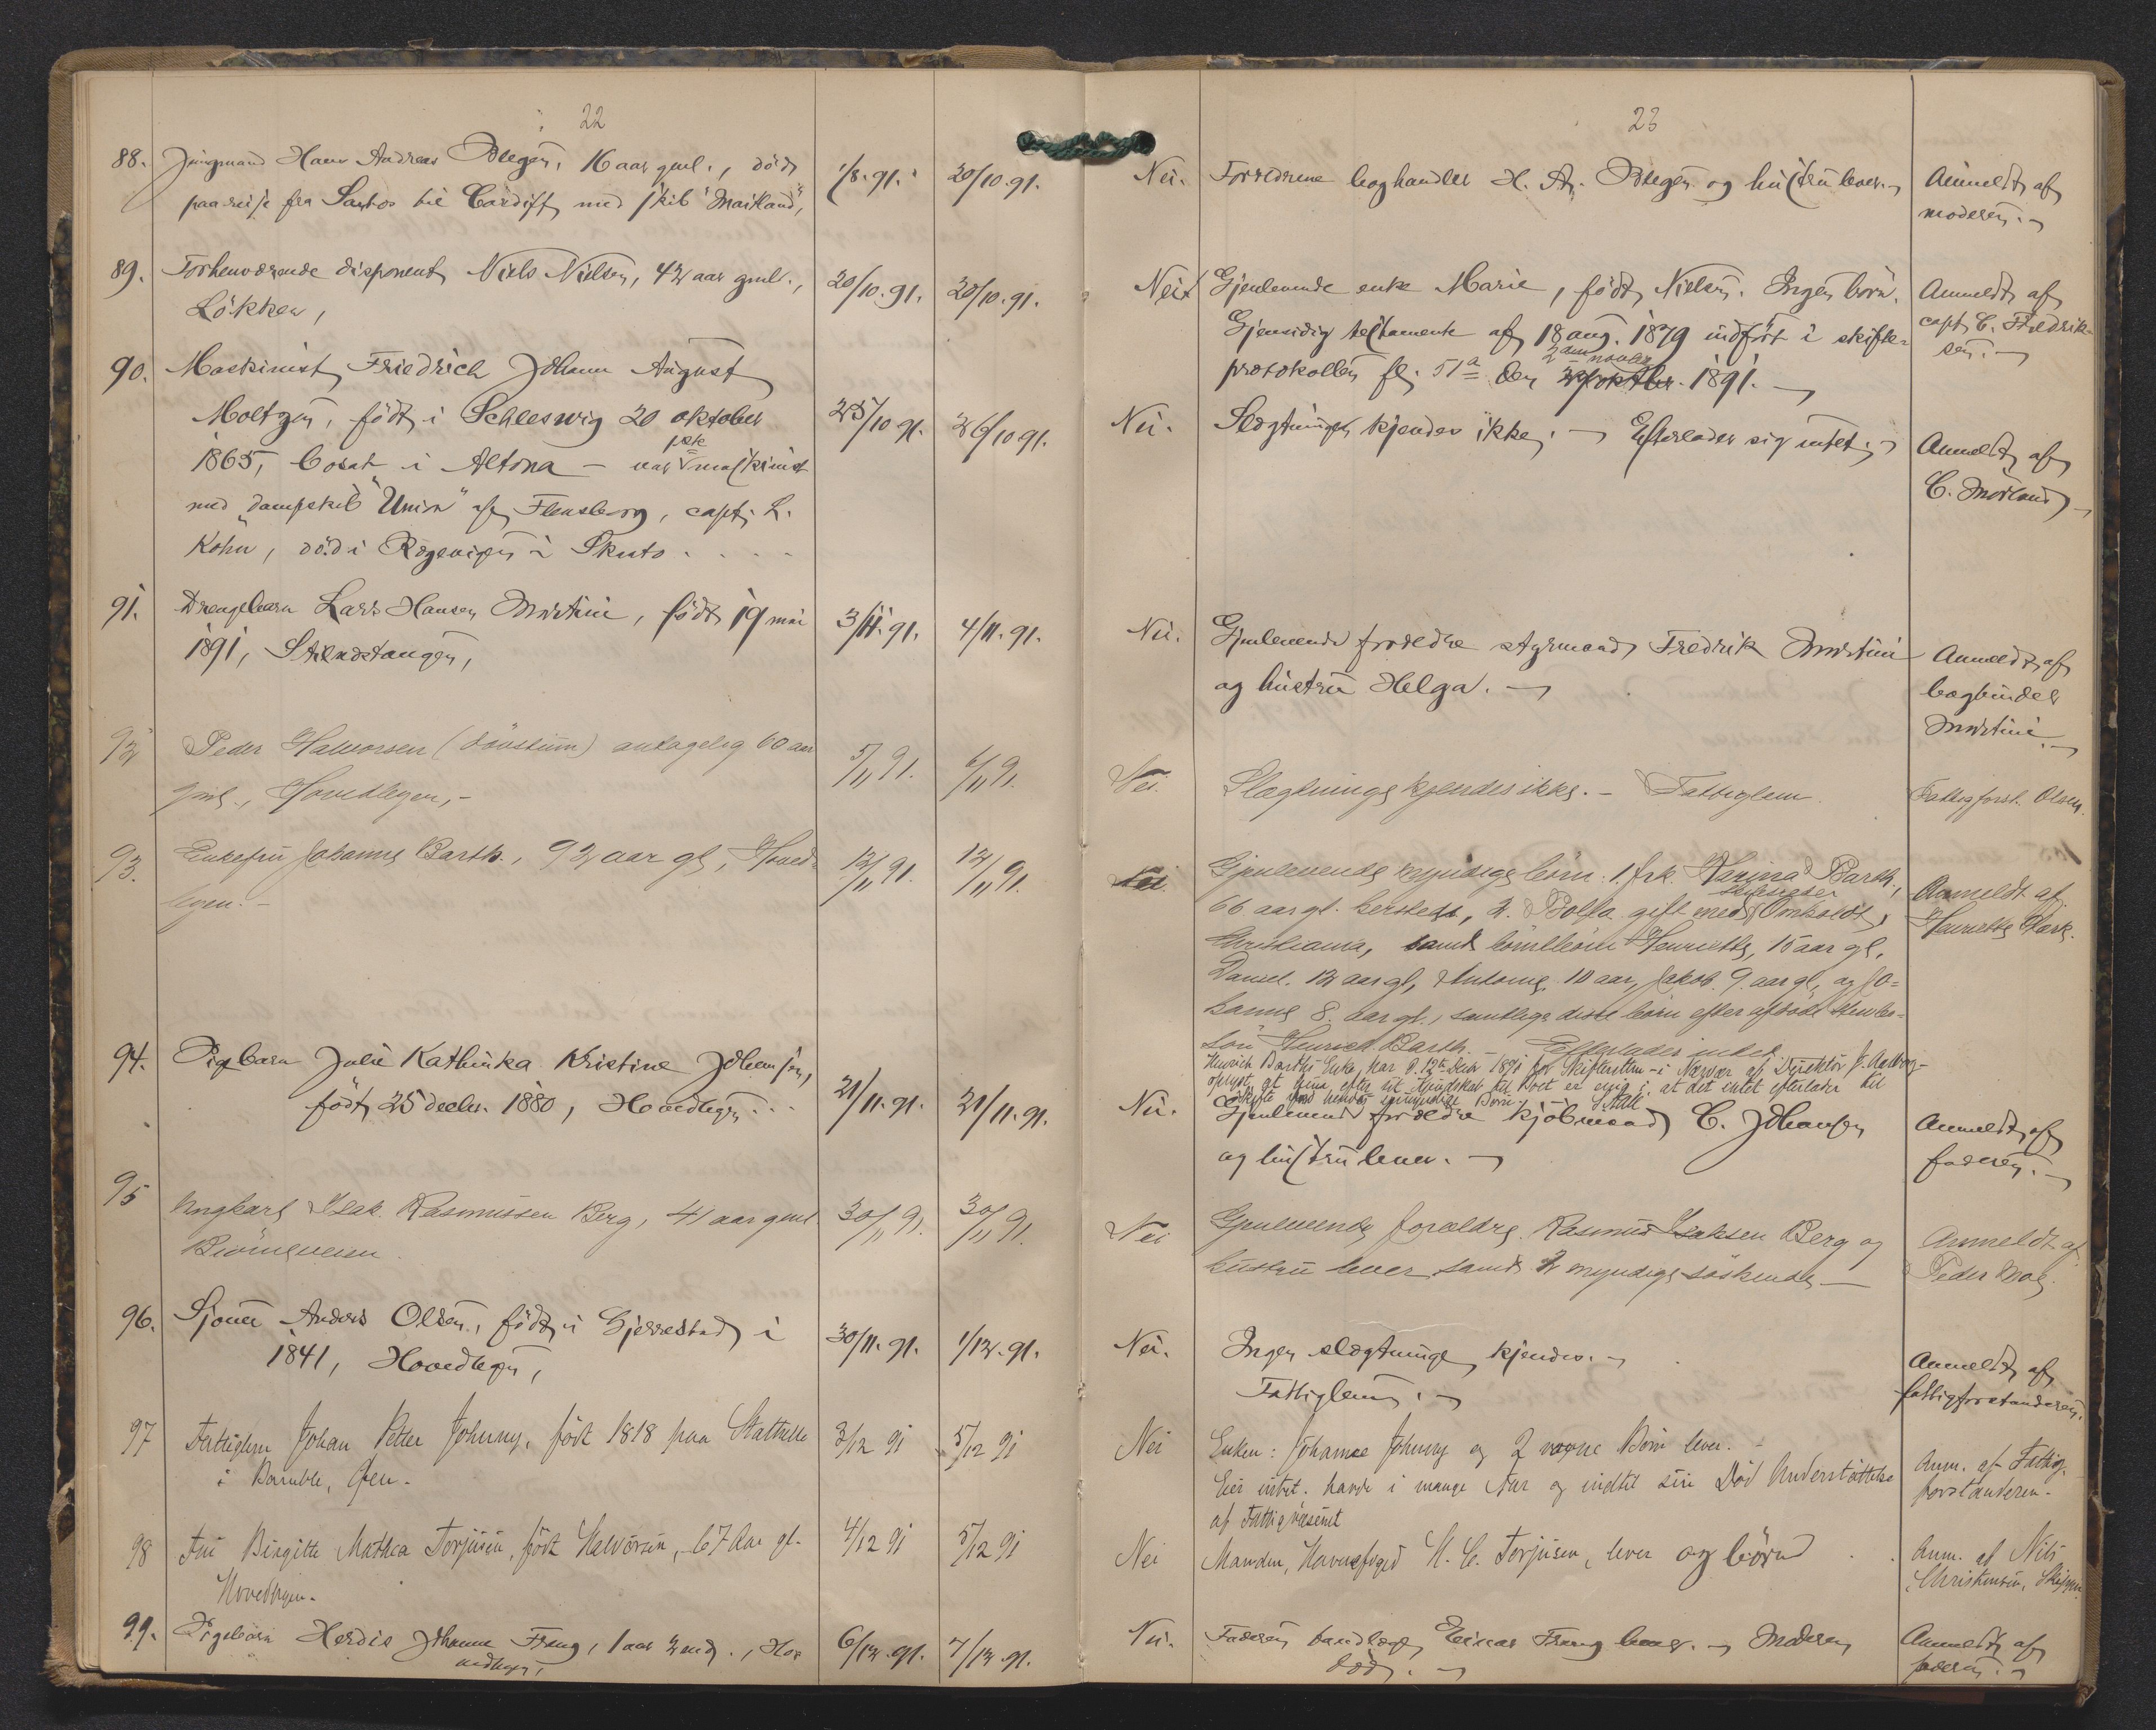 22
88. Jungmand Hans Andreas Blegen, 16 aar gml., död
paa reise fra Santos til Cardiff med skib "Maitland",
1/8.91. 20/10.91.
89. Forhenværende disponent Niels Nielsen, 42 aar gml.,
Lökken,
20/10.91. 20/10.91.
90. Maskinist Friedrich Johann August
Moltzen, född i Schleswig 20 oktober
1865, bosat i Altona – var 1ste maskinist
med dampskib "Union" af Flensborg, capt. L.
Kohn, död i i Skuto . . . .
25/10 91. 26/10 91.
91. Drengebarn Lars Hansen Martini, född 19 mai
1891, Strandstangen,
3/11.91. 4/11.91.
92 Peder Halvorsen (dövstum) antagelig 60 aar
gml., Hovedbyen,-
5/11 91. 6/11 91.
93. Enkefru Johanne Barth, 92 aar gl, Hoved-
byen.-
12/11 91. 12/11 91.
94. Pigebarn Julie Kathinka Kristine Johansen,
född 25 decbr. 1880, Hovedbyen . . .
21/11.91. 21/11.91.
95 Ungkarl Isak Rasmussen Berg, 41 aar gml
30/11 91. 30/11 91.
96. Sjömand Anders Olsen, född i Gjerrestad i
1841, Hovedbyen,
30/11.91. 1/12.91.
97 Fattiglem Johan Petter Johnny, född 1818 paa Stathelle
i Bamble, Öen.-
3/12 91 5/12 91
98 Fru Birgitte Mathea Torjusen, född Halvorsen, 67 Aar gl.
Hovedbyen.
4/12 91 5/12 91
99. Pigebarn Herdis Johanne Frang, 1 aar 2 md., Hov
edbyen,
6/12.91. 7/12.91.
23
Nei. Forældrene boghandler H. A. Blegen og hustru lever. Anmeldt af
moderen.
Nei Gjenlevende enke Marie, född Nielsen. Ingen börn. Anmeldt af
capt. C. Fredrik-
sen.
Gjensidig testamente af 18 aug. 1879 indfört i skifte-
protokollen fl. 51a den 2den novbr. 1891.
Nei. Slægtninge kjendes ikke. Efterlader sig intet. Anmeldt af
C. Mörland
Nei. Gjenlevende forældre styrmand Fredrik Martini
og hustru Helga.
Anmeldt af
bogbinder
Martini.
Nei. Slægtninge kjendes ikke. – Fattiglem Fattigforst. Olsen.
Nei. Gjenlevende myndige börn: 1. frk. Barth,
66 aar gl. hersteds, 2. gift med Omholdt,
Christiania, samt börnebörn Henriette, 15 aar gl,
Daniel 12 aar gl, Antonie 10 aar, Jakob 9 aar gl, og Jo-
hanne 8 aar gl., samtlige disse börn efter afdöde
sön Henrich Barth. – Efterlader intet.
Anmeldt af
Henriette Barth.
Henrich Barths Enke har d. 12te Decbr 1891 for Skifteretten i Nærvær af Direktör J. Aalborg
oplyst, at hun, efter sit Kjendskab til Boet er enig i, at det intet efterlader til
Nei. Gjenlevende forældre kjöbmand C. Johansen
og hustru lever.
Anmeldt af
faderen.
Nei Gjenlevende forældre Rasmus Isaksen Berg og
hustru lever samt 2 myndige söskende.–
Anmeldt af
Peder Moe.
Nei. Ingen slægtninge kjendes.
Fattiglem.
Anmeldt af
fattigforstanderen.
Nei Enken: Johanne Johnny og 2 voxne Börn lever.-
Eier intet. havde i mange Aar og indtil sin Död Understöttelse
af Fattigvæsenet
Anm. af Fattig-
forstanderen.
Nei Manden, Havnefoged N. C. Torjusen, lever og börn
Anm. af Nils
Christensen, Skipper
Nei. Faderen tandlæge Einar Frang lever. Moderen
död.
Anmeldt af
faderen.